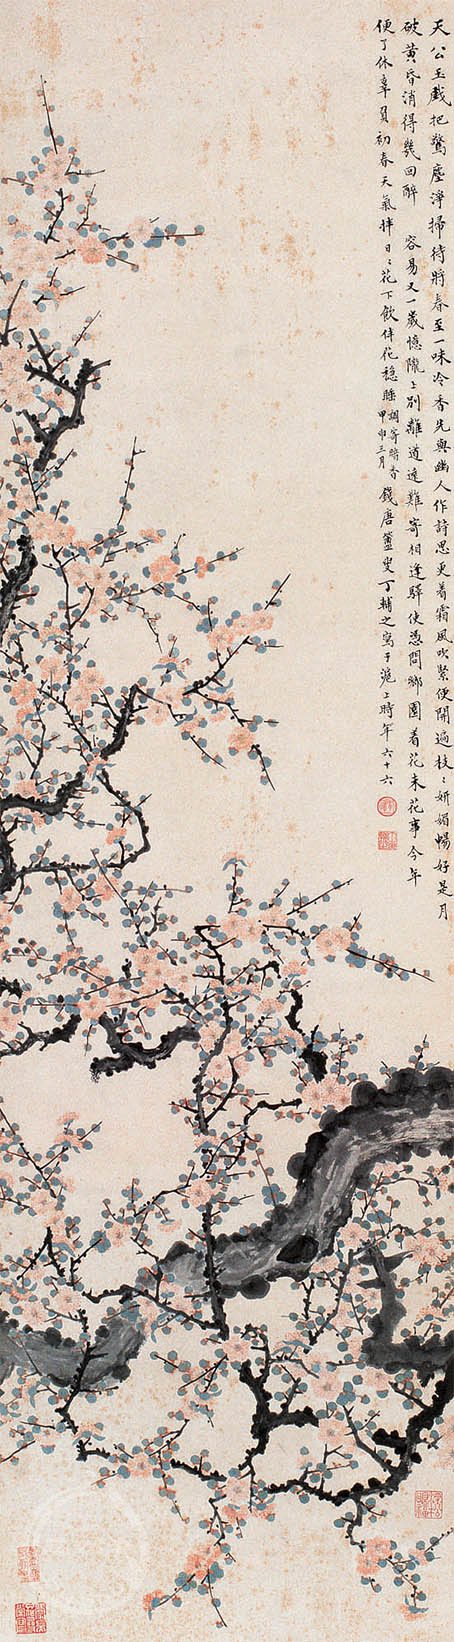 天公玉戲把驚塵淨掃待將春至一味冷香先與幽人作詩思更着霜風吹緊便開遍枝〻妍媚暢好是月
破黃昏消得幾回醉 容易又一歲憶隴上別離道遠難寄相逢驛使憑問鄉園着花未花事今年
便了休辜負初春天氣拌日〻花下飲伴花穩睡調寄暗香甲申三月錢唐簠叟丁輔之寫于滬上時年六十六